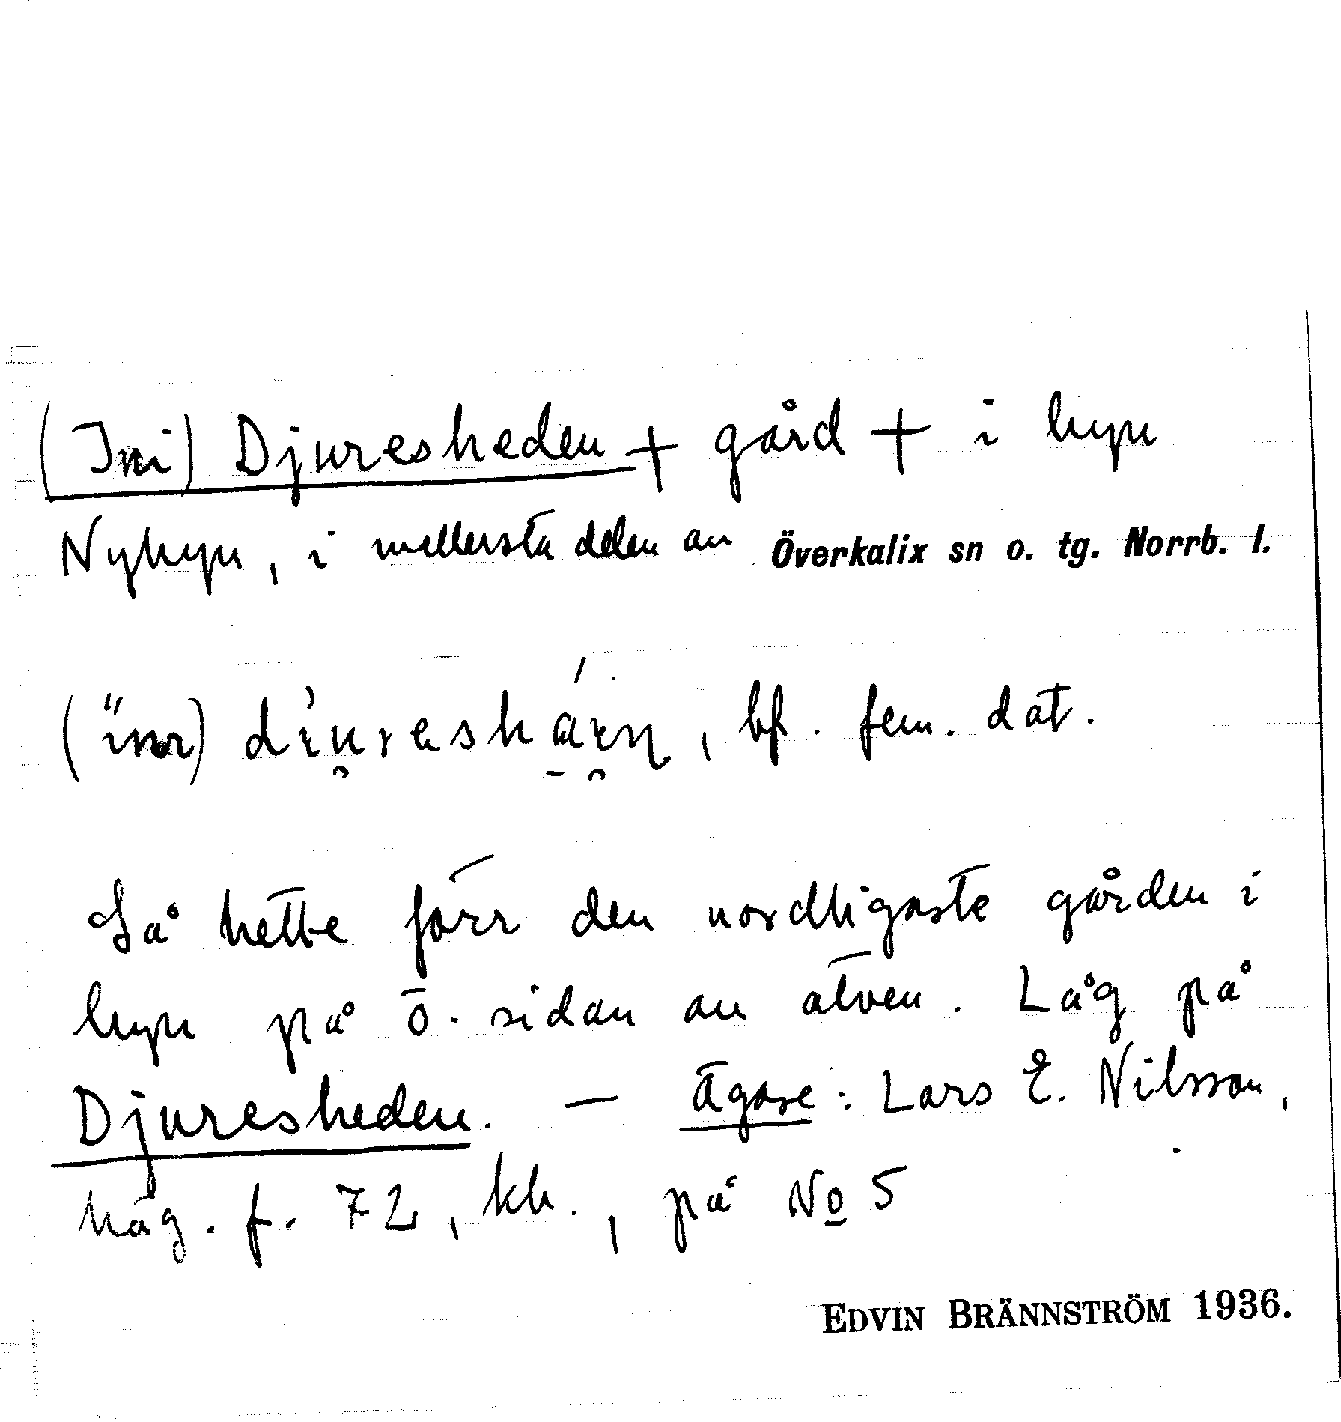 (Ini) Djuresheden + gård + i byn
Nybyn, i mellersta delen av Överkalix sn o. tg. Norrb. l.
bf. fem. dat.
Så hette förr den nordligaste gården i
byn på ö. sidan av älven. Låg på
Djuresheden. — Ägare: Lars E. Nilsson,
häg. f. 72, kh., på No 5
EDVIN BRÄNNSTRÖM 1936.